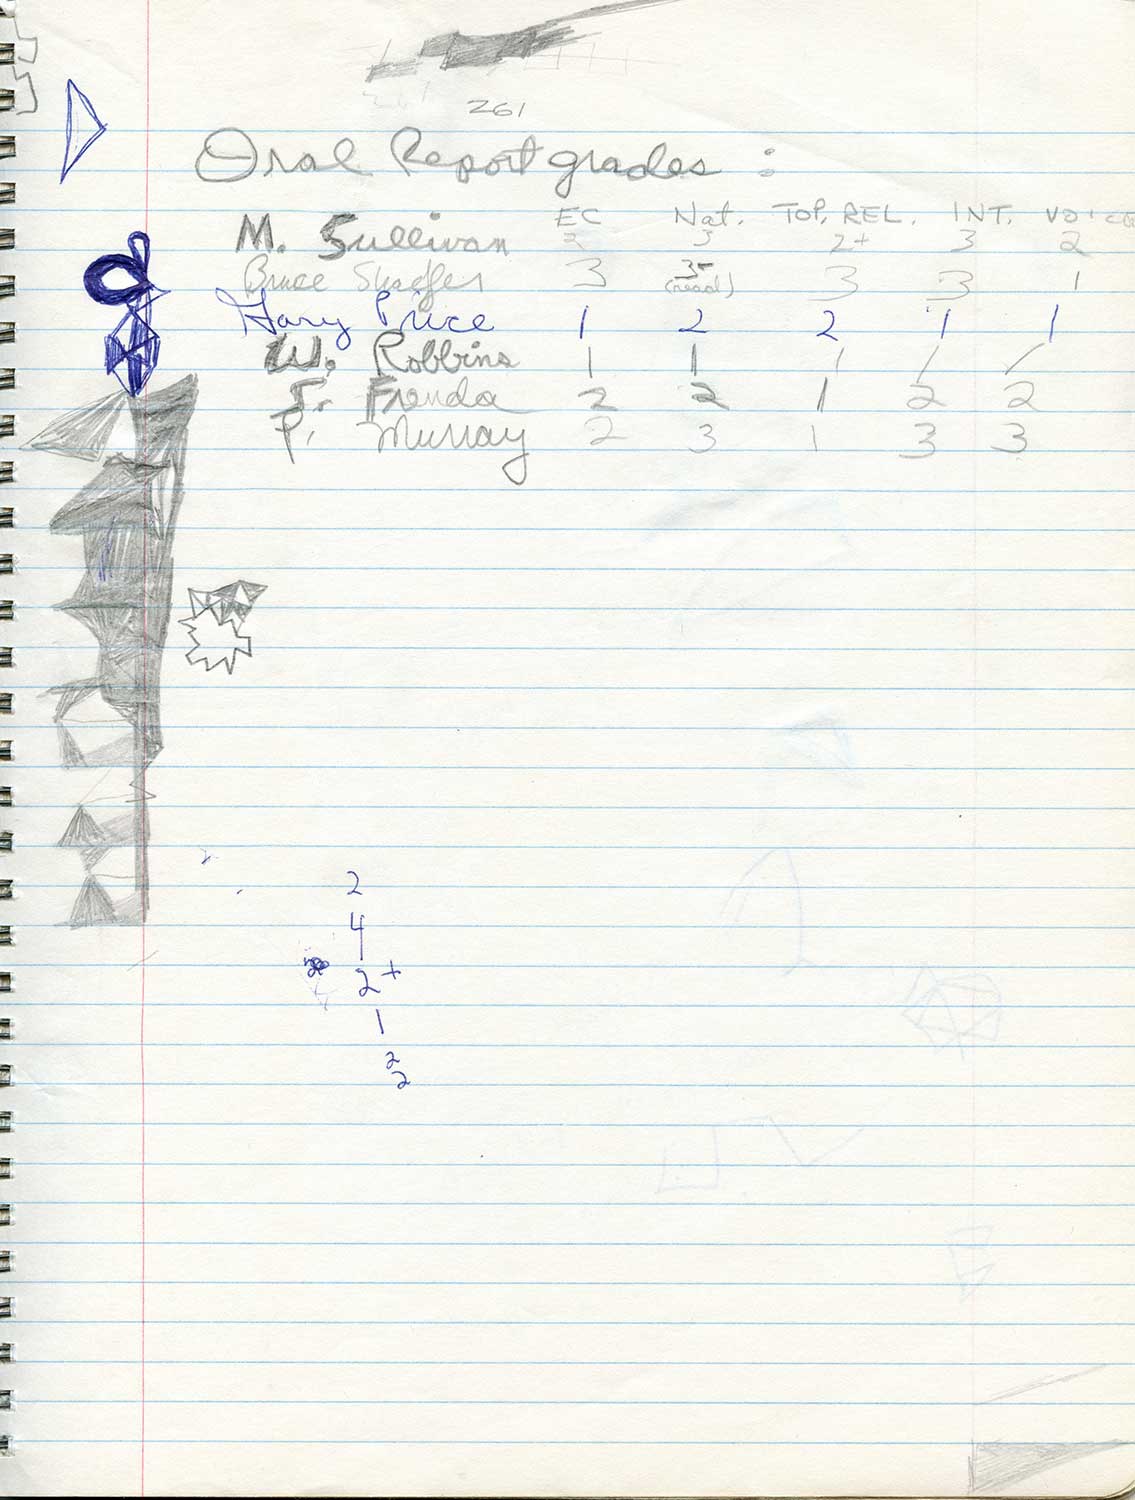 261
Oral Report grades :
EC Nat. TOP. REL. INT. VOICE
M. Sullivan 2 3 2+ 3 2
Bruce 3 3- (read) 3 3 1
Gary Price 1 2 2 1 1
W. Robbins 1 1 1 / /
Frenda 2 2 1 2 2
P. Murray 2 3 1 3 3
2
4
2+
1
2
2